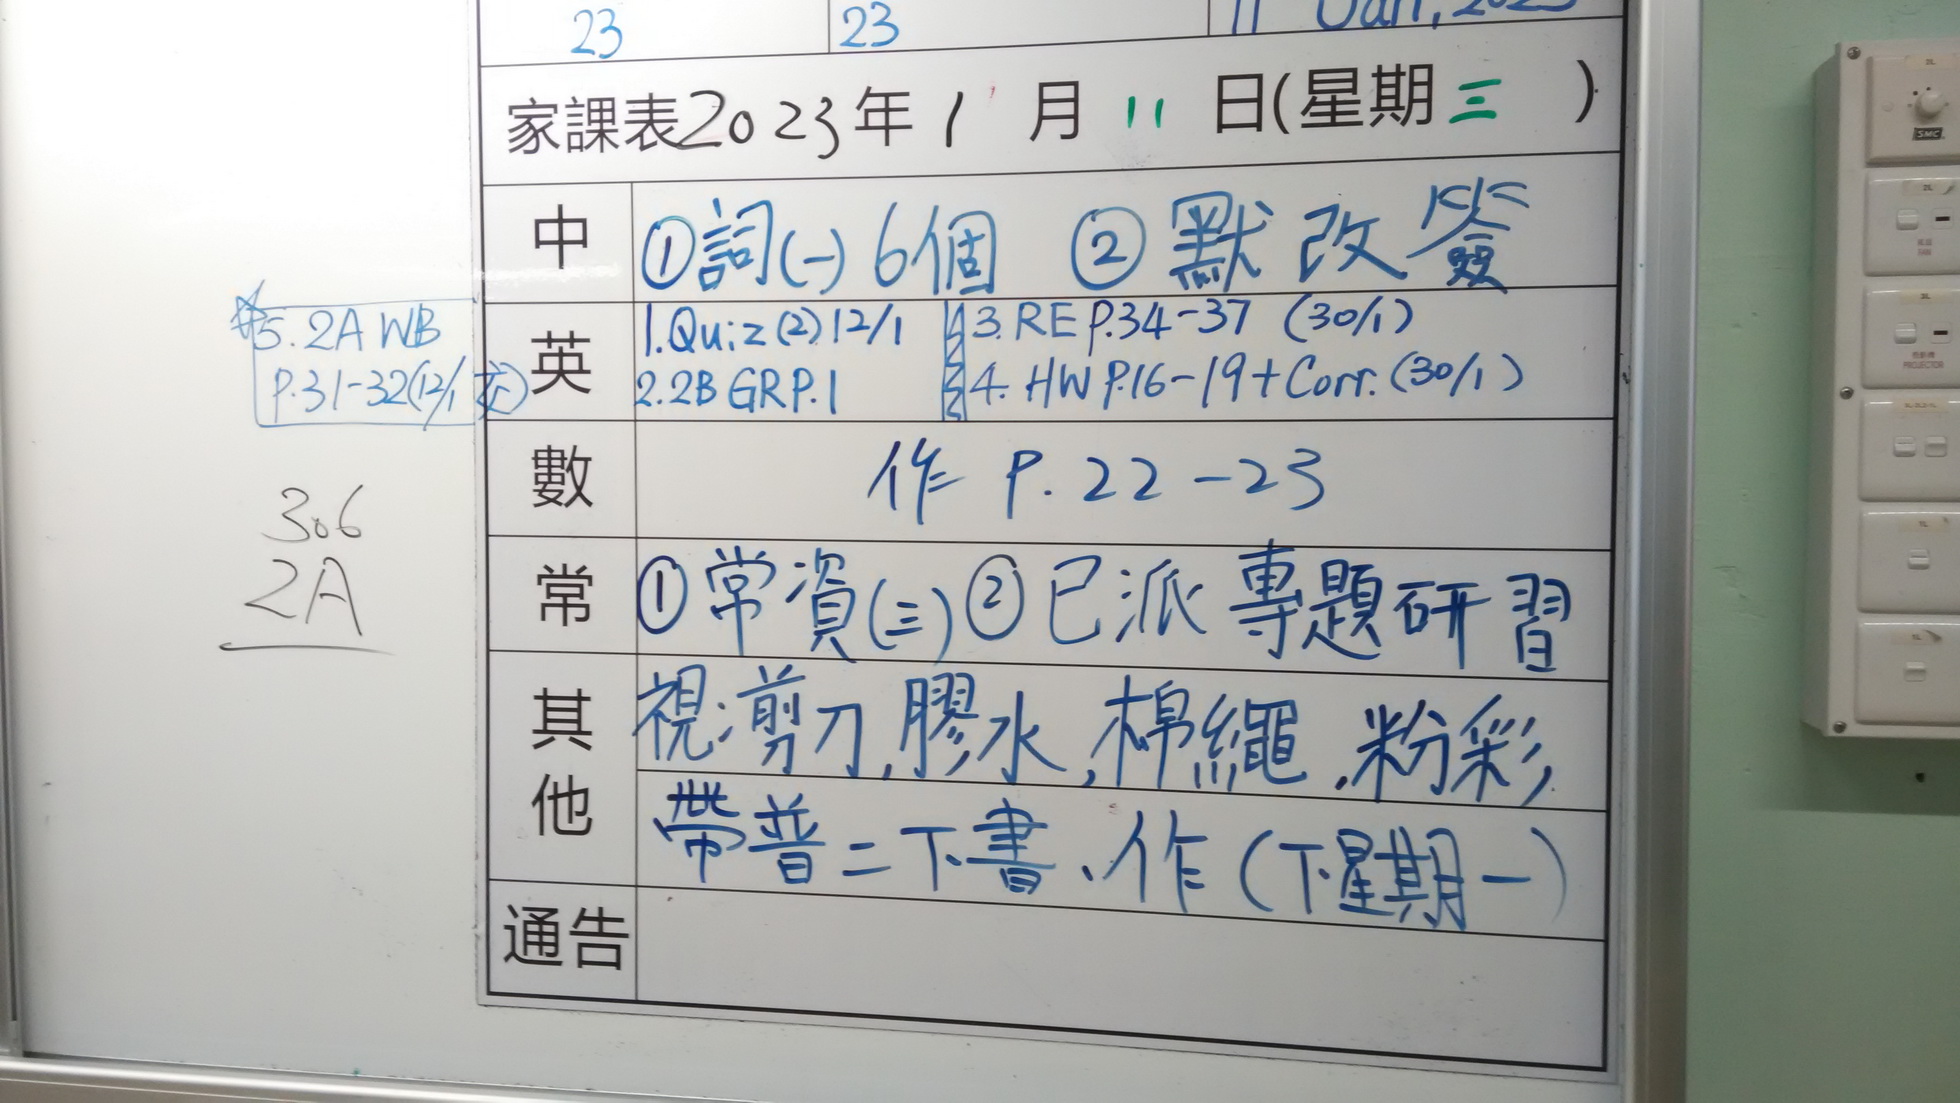 23 23 11 Jan, 2023
家課表2023年1月11日(星期三)
中 ①詞(一)6個 ②默改簽
英 1.Quiz(2)12/1 3.RE P.34-37 (30/1)
2.2B GR P.1 4. HW P.16-19+Corr.(30/1)
☆5. 2A WB
P.31-32(12/1交)
數 作 P. 22-23
306
2A
常 ①常資(三)②已派專題研習
其他 視:剪刀,膠水,棉繩,粉彩
帶普二下書、作(下星期一)
通告
SMC
FAN
PROJECTOR